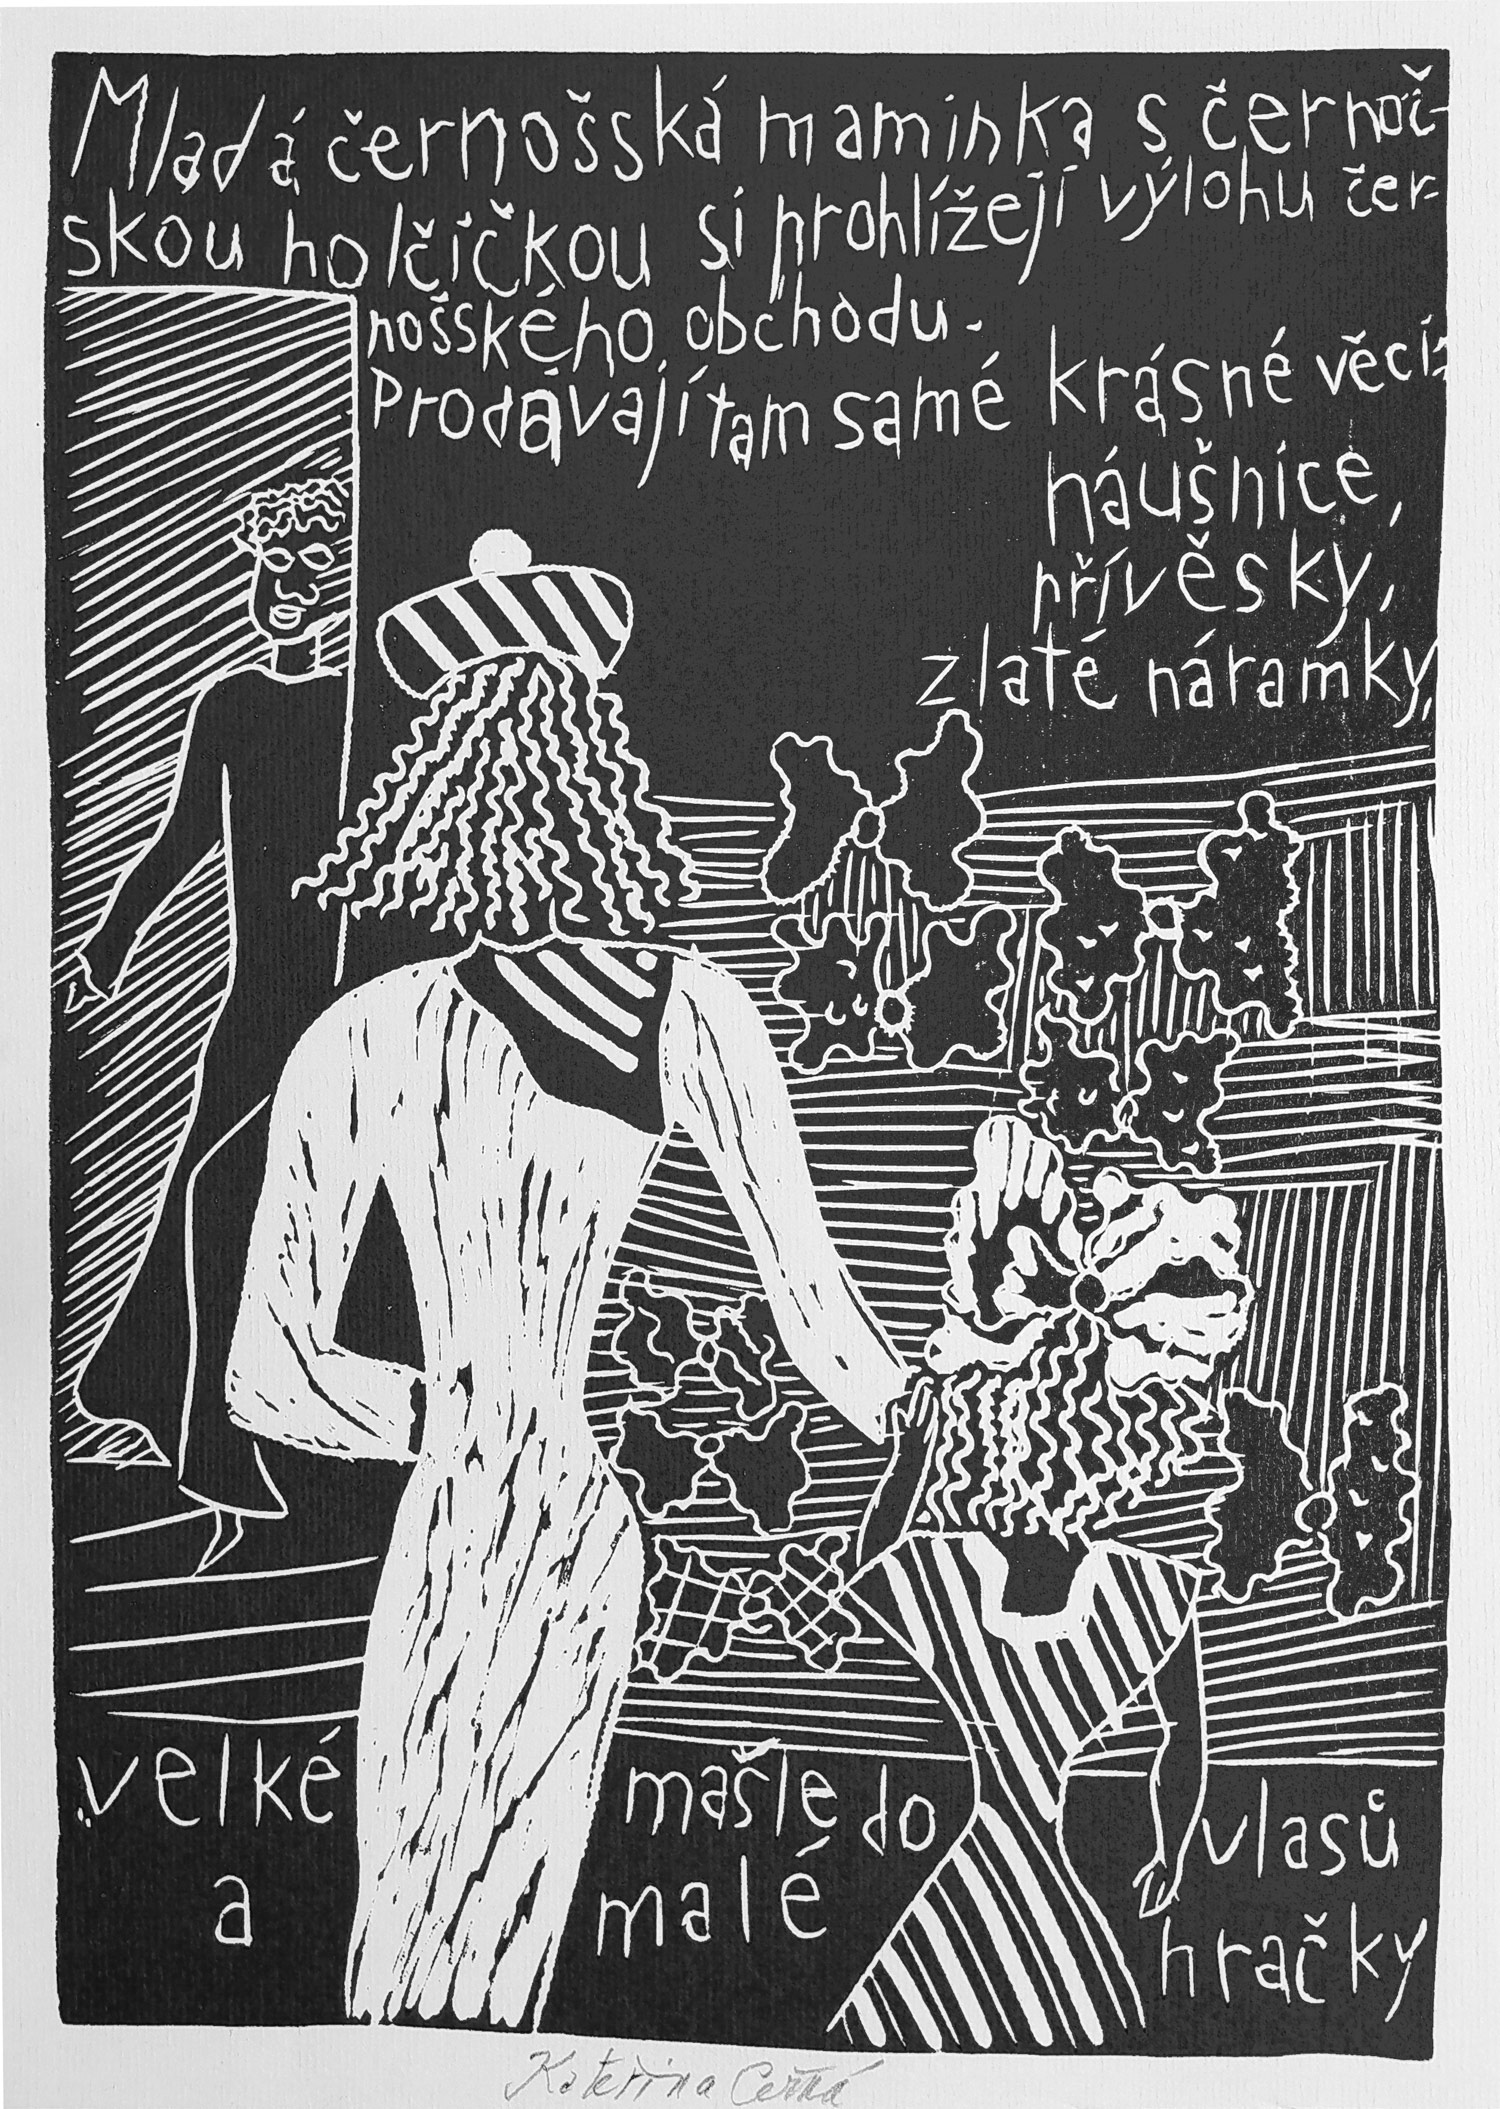 Mladá černošská maminka s černoš-
skou holčičkou si prohlížejí výlohu čer-
nošského obchodu.
Prodávají tam samé krásné věci:
náušnice,
přívěsky,
zlaté náramky,
velké mašle do vlasů
a malé hračky
Kateřina Černá